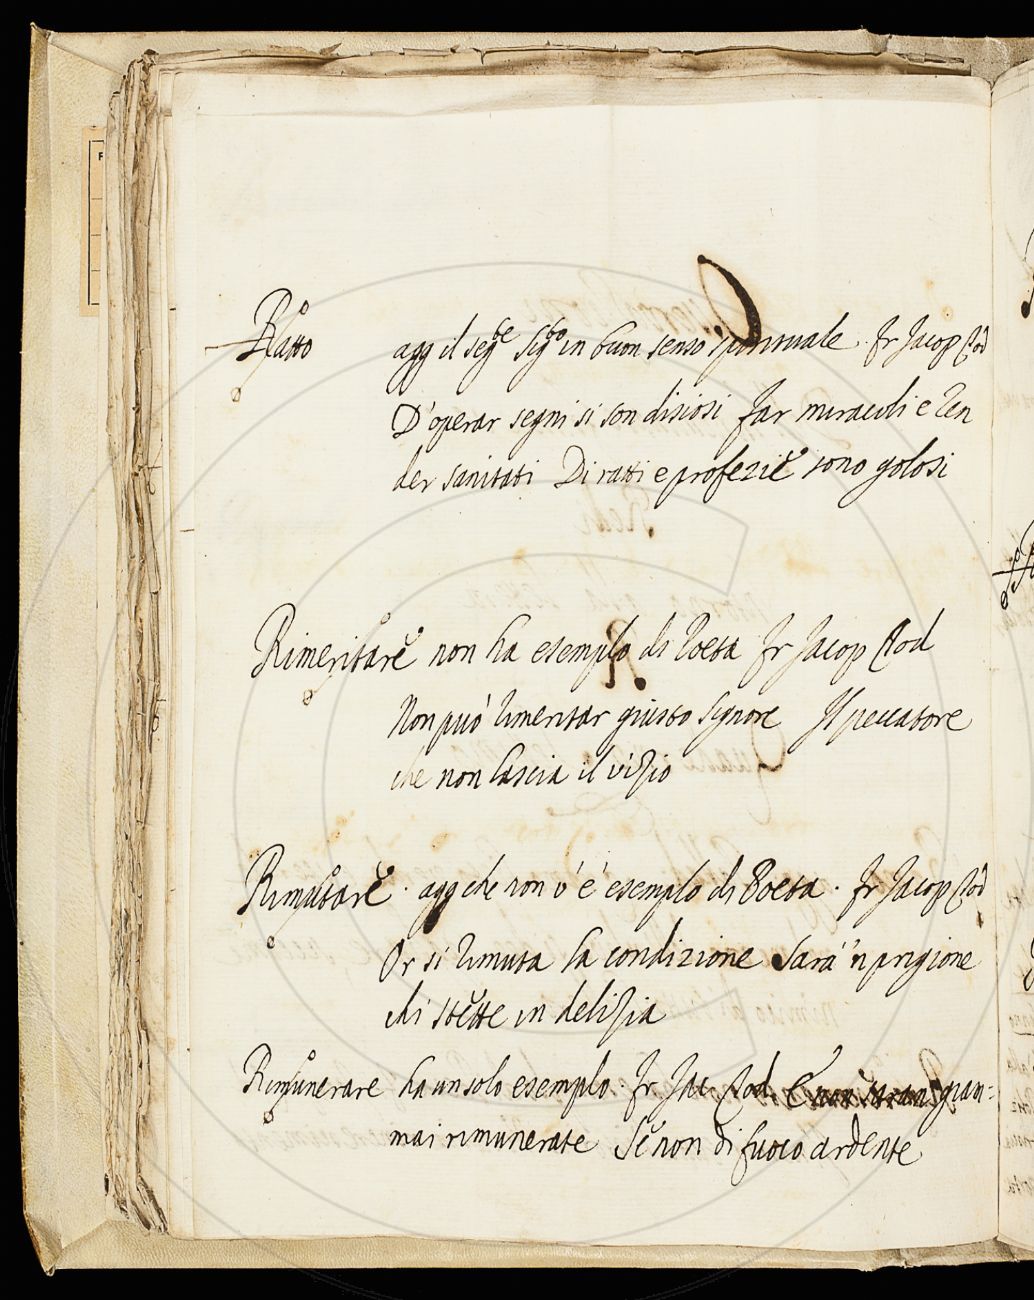 Ratto agg il segte sigto in buon senso spirituale . Fr Jacop Tod
D'operar segni si son disiosi Far miracoli e Ren
der sanitati Di ratti e profezie sono golosi
Rimeritare non ha esempio di Poeta Fr Jacop Tod
Non può Rimeritar giusto Signore Il peccatore
che non lascia il vizio
Rimutare . agg che non v'è esempio di Poeta . Fr Jacop Tod
Or si Rimuta la condizione Sarà 'n prigione
chi stette in delizia
Rimunerare ha un solo esempio . Fr Jac Tod. E giam=
mai rimunerate Se non di fuoco ardente